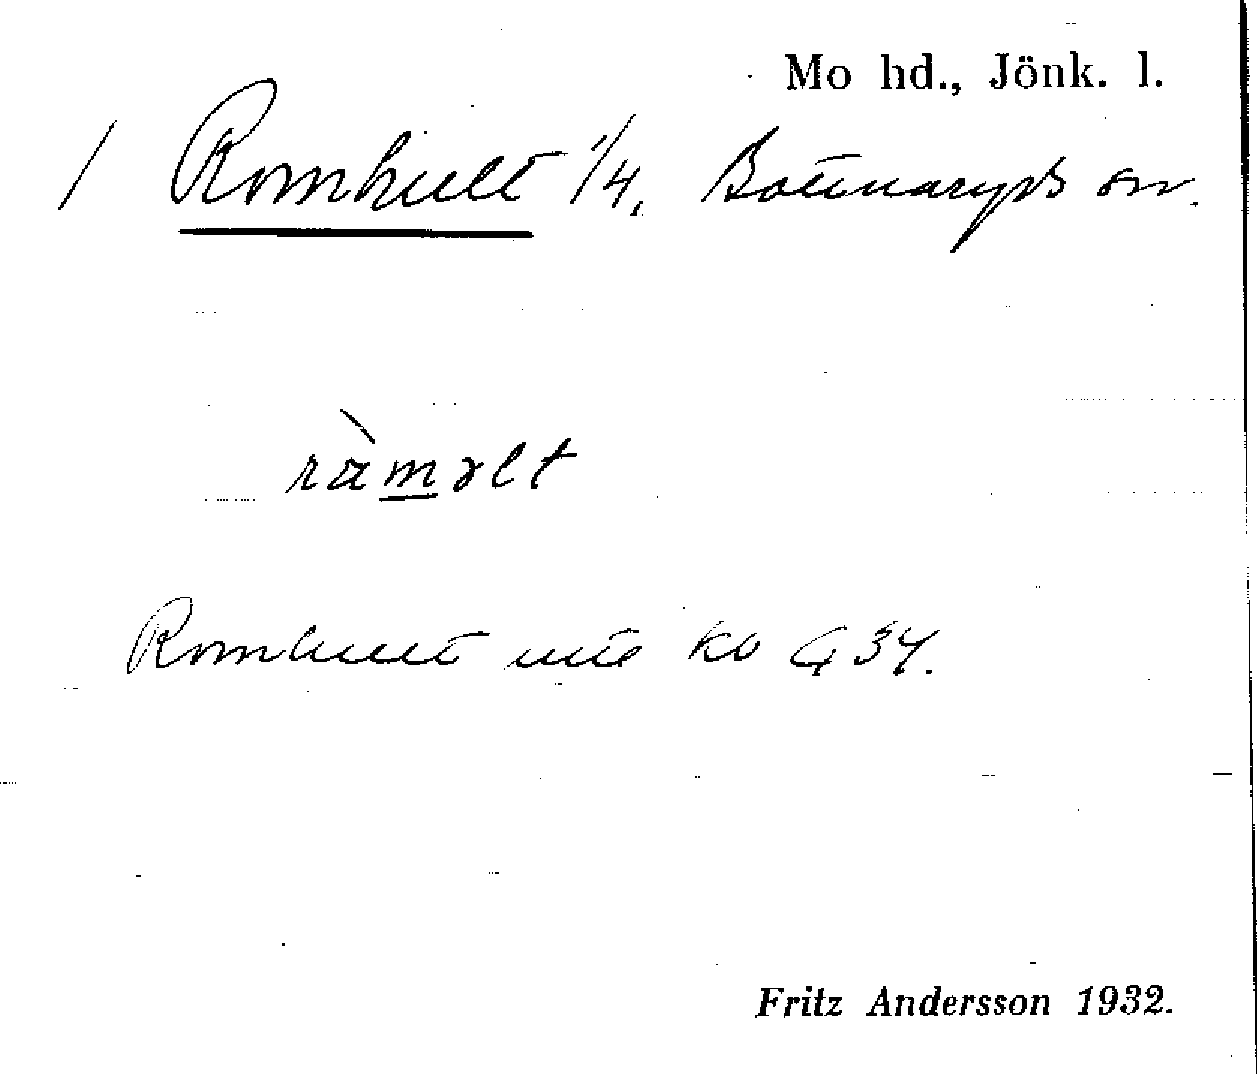 Mo hd., Jönk. l.
/ Romhult 1/4, Bottnaryds sn.
ràməlt
Romhult ute ko G 34.
Fritz Andersson 1932.